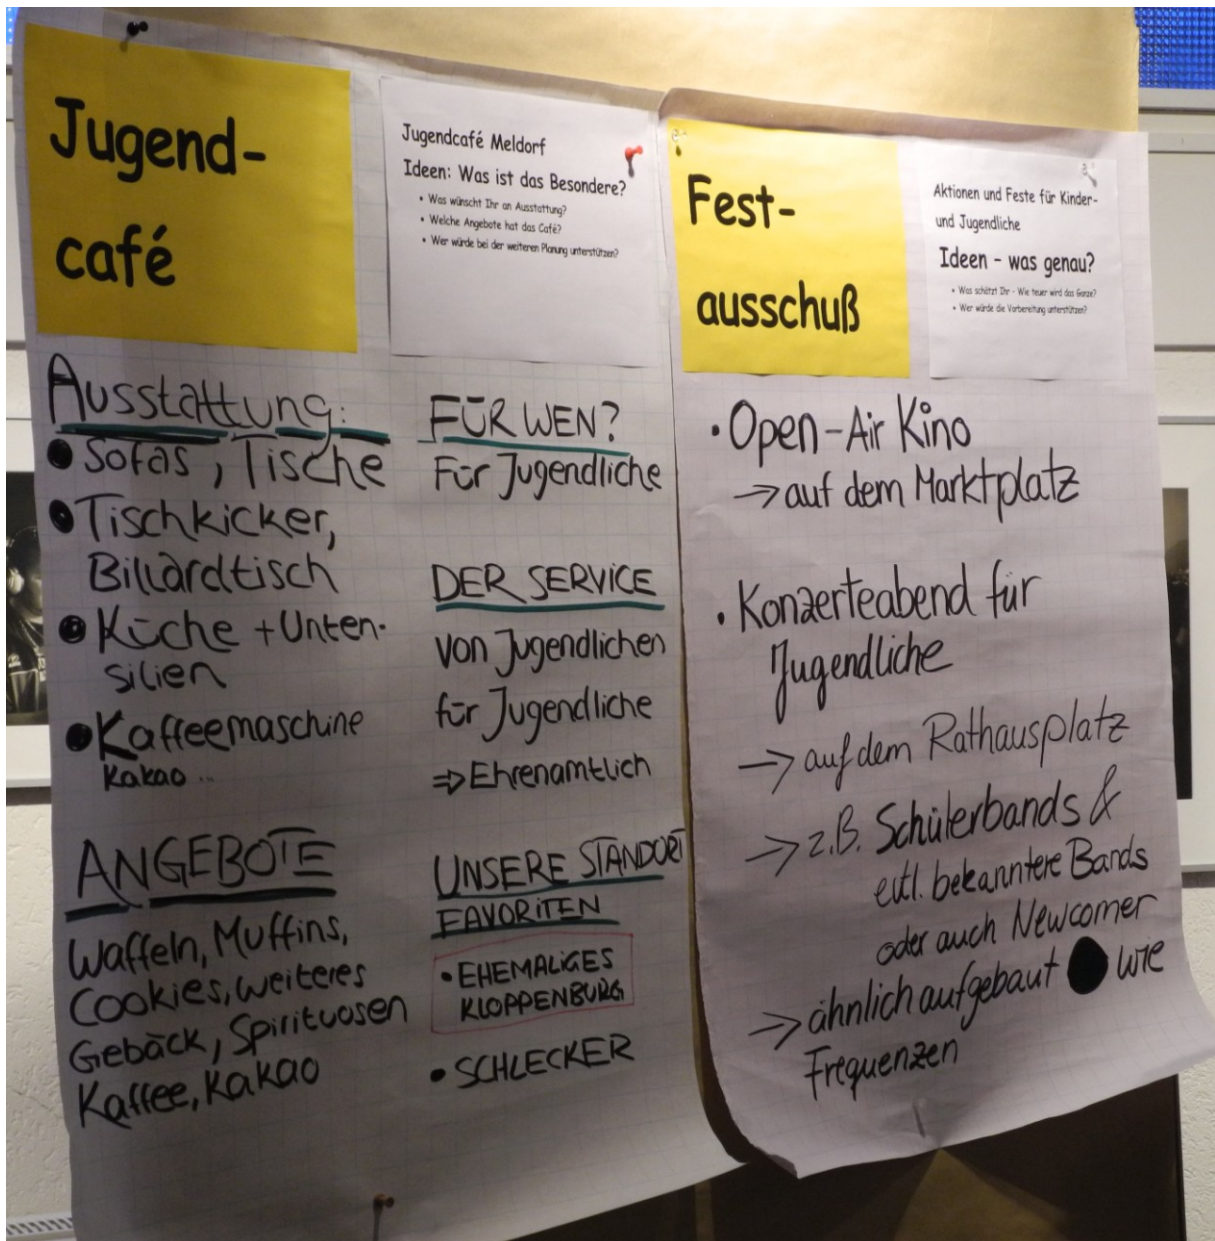 Jugend-
café
Jugendcafé Meldorf
Ideen: Was ist das Besondere?
• Was wünscht Ihr an Ausstattung?
• Welche Angebote hat das Café?
• Wer würde bei der weiteren Planung unterstützen?
Ausstattung:
• Sofas, Tische
• Tischkicker,
Billardtisch
• Küche + Unten-
silien
• Kaffeemaschine
Kakao ...
ANGEBOTE
Waffeln, Muffins,
Cookies, weiteres
Gebäck, Spirituosen
Kaffee, Kakao
FÜR WEN?
Für Jugendliche
DER SERVICE
von Jugendlichen
für Jugendliche
⇒ Ehrenamtlich
UNSERE STANDORT
FAVORITEN
• EHEMALIGES
KLOPPENBURG
• SCHLECKER
Fest-
ausschuß
Aktionen und Feste für Kinder-
und Jugendliche
Ideen - was genau?
• Was schätzt Ihr - Wie teuer wird das Ganze?
• Wer würde die Vorbereitung unterstützen?
• Open-Air Kino
→ auf dem Marktplatz
• Konzerteabend für
Jugendliche
→ auf dem Rathausplatz
→ z.B. Schülerbands &
evtl. bekanntere Bands
oder auch Newcomer
→ ähnlich aufgebaut wie
Frequenzen